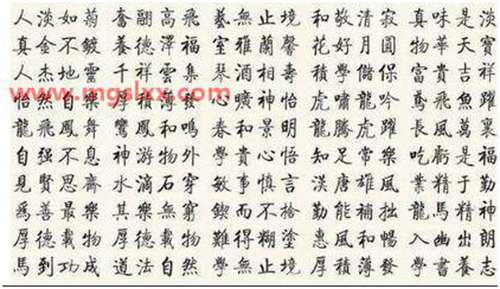 人淡如菊 奮翮高飛 藝無止境 和敬清寂 真味是淡
真金不鍍 養德澤福 室雅蘭馨 花好月圓 物華天寶
人杰地靈 千祥雲集 琴酒相 富貴吉祥
www.mgslxx.com
怡然自樂 厚積薄發 心曠神怡 虎嘯龍吟 鳶飛魚躍
龍飛鳳舞 鸞鳳和鳴 春和景明 龍騰虎躍 長風萬裏
自强不息 神游物外 和貴心悟 知足常樂 吃虧是福
見賢思齊 水滴石穿 敏事慎言 漢唐雄風 業精于勤
為善最樂 其樂無窮 鍥而不捨 勤能補拙 龍馬精神
厚德載物 厚德載物 難得糊塗 惠風和暢 入幽出朗
馬到功成 道法自然 學無止境 厚積薄發 學書養志